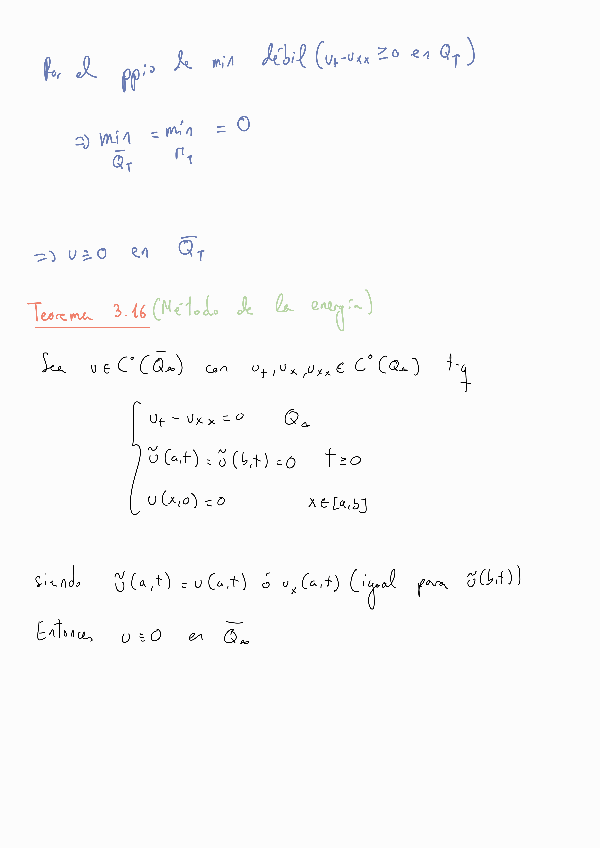 Por el ppio de min débil (u_t - u_xx ≥ 0 en Q_T)
⇒ min = min = 0
Q̄_T Γ_T
⇒ u ≥ 0 en Q̄_T
Teorema 3.16 (Método de la energía)
Sea u ∈ C°(Q̄_∞) con u_t, u_x, u_xx ∈ C°(Q_∞) t.q
u_t - u_xx = 0 Q_∞
ũ(a,t) = ũ(b,t) = 0 t ≥ 0
u(x,0) = 0 x ∈ [a,b]
siendo ũ(a,t) = u(a,t) ó u_x(a,t) (igual para ũ(b,t))
Entonces u ≡ 0 en Q̄_∞